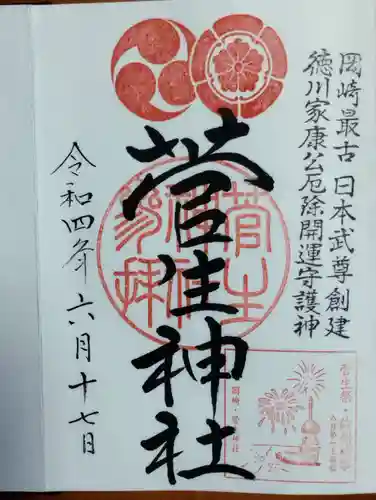 岡崎最古 日本武尊創建
徳川家康公厄除開運守護神
菅生神社
令和四年六月十七日
菅生神社
参拝
菅生祭
岡崎